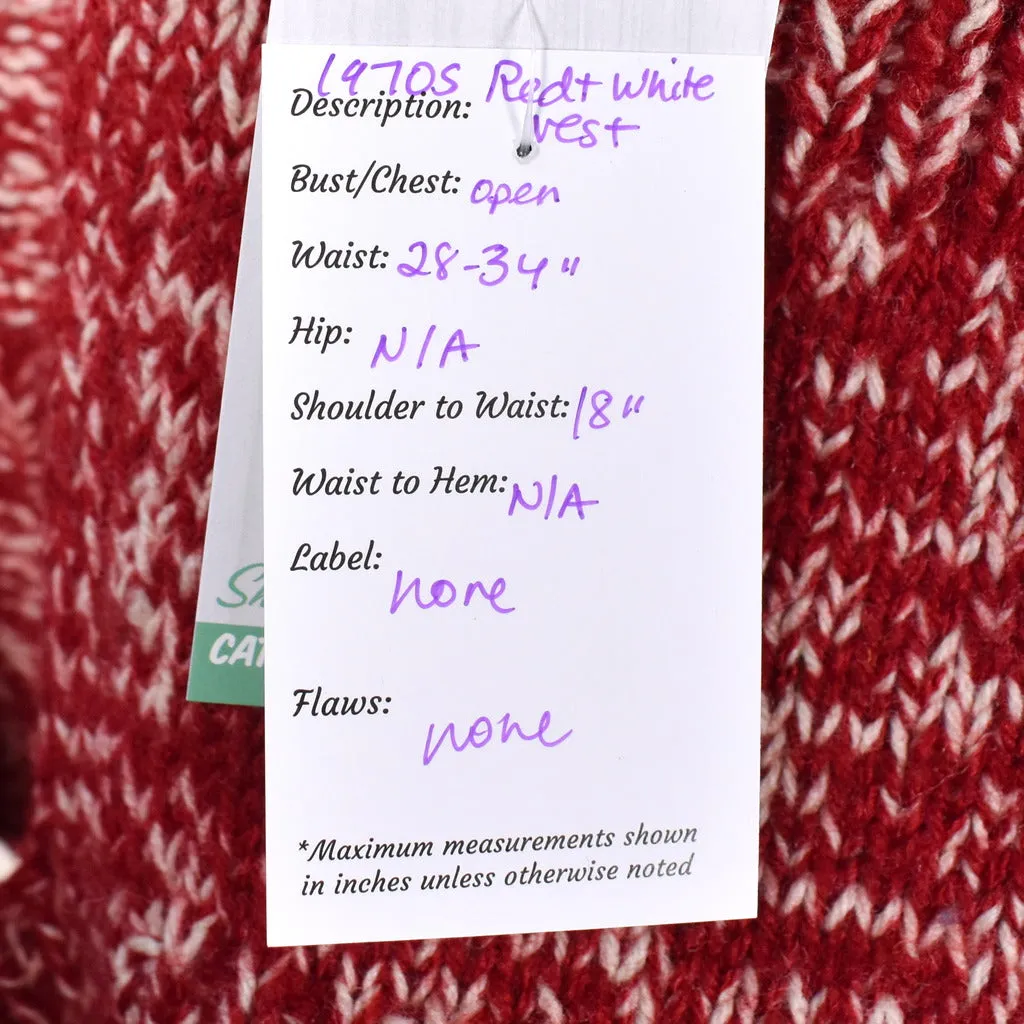 1970s Red + White
Description: vest
Bust/Chest: open
Waist: 28-34"
Hip: N/A
Shoulder to Waist: 18"
Waist to Hem: N/A
Label: none
Flaws: none
*Maximum measurements shown
in inches unless otherwise noted